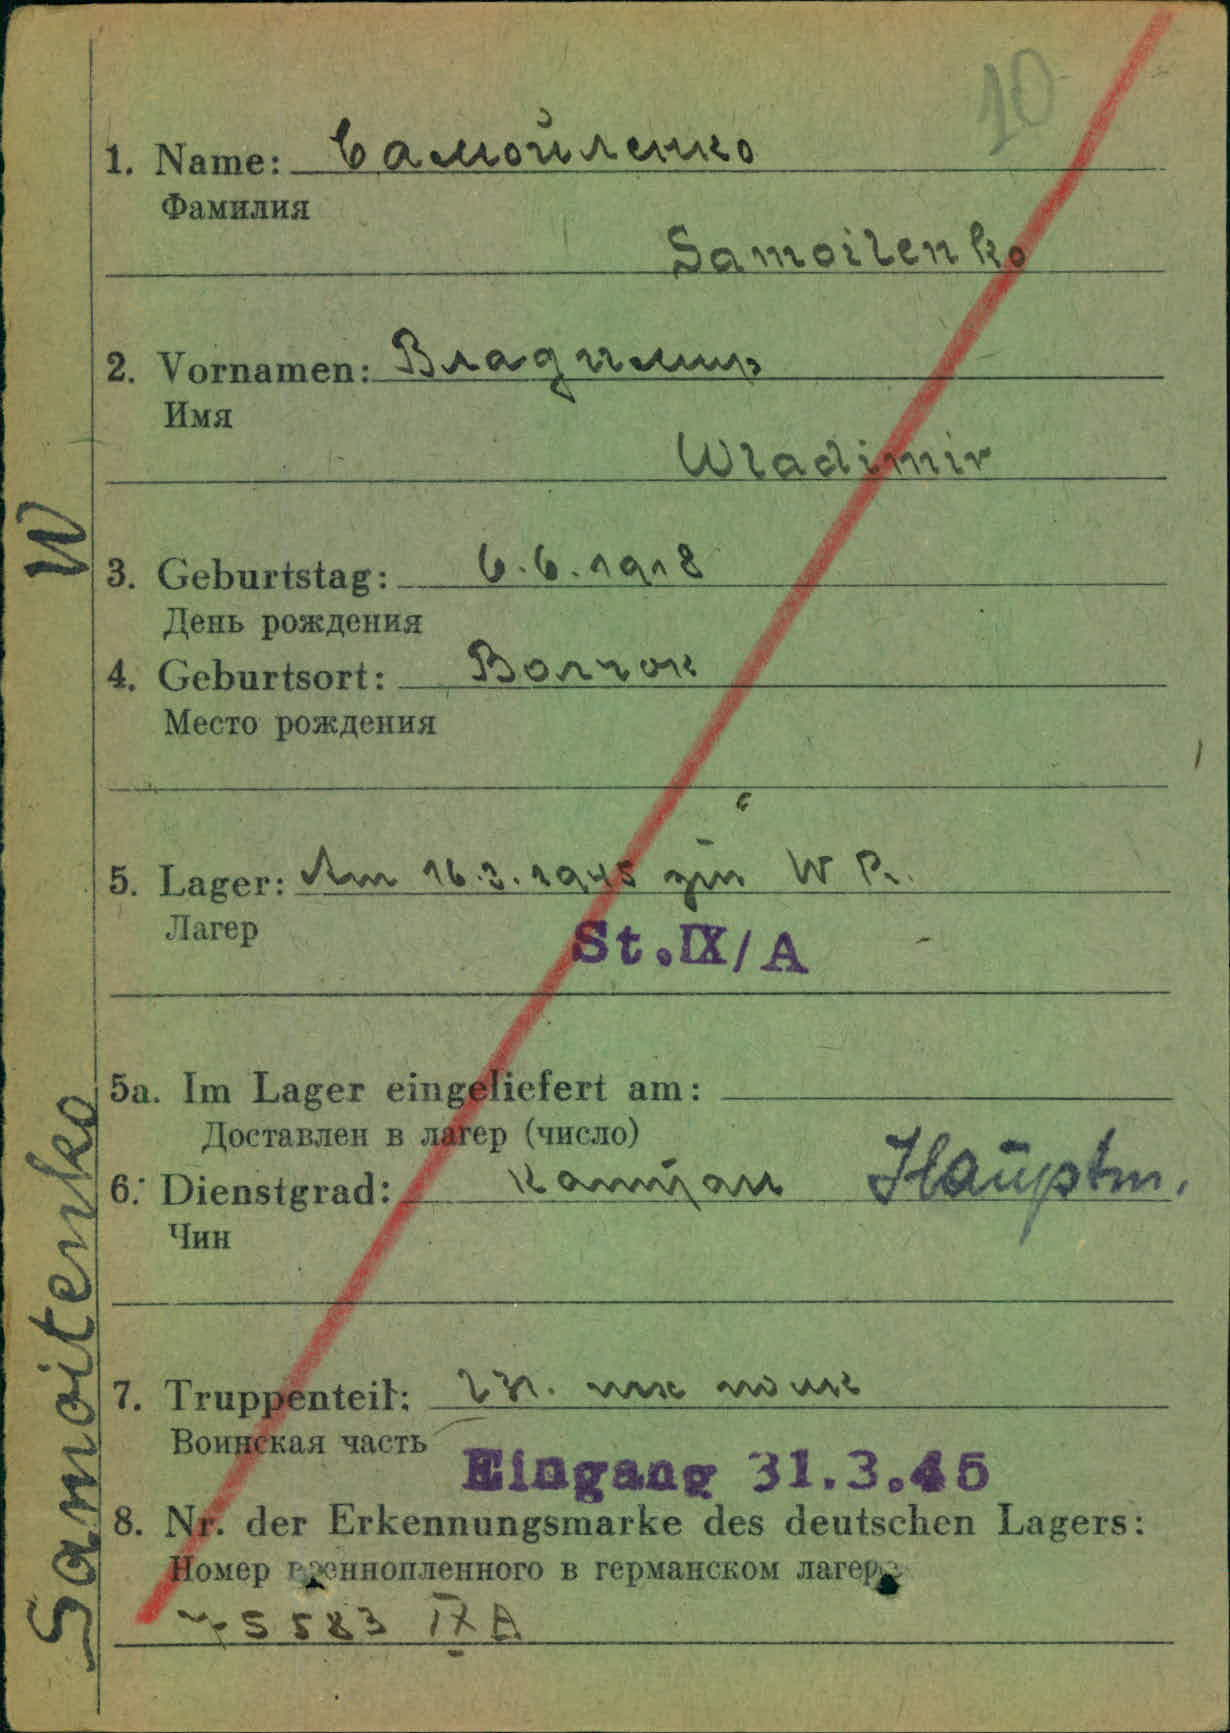 10
1. Name: Самойленко
Фамилия
Samoilenko
2. Vornamen: Владимир
Имя
Wladimir
3. Geburtstag: 6.6.1918
День рождения
4. Geburtsort: Волчок
Место рождения
5. Lager: Am 16.3.1945 zur W
Лагер
St.IX/A
5a. Im Lager eingeliefert am:
Доставлен в лагер (число)
6. Dienstgrad: капитан Hauptm.
Чин
7. Truppenteil:
Воинская часть
Eingang 31.3.45
8. Nr. der Erkennungsmarke des deutschen Lagers:
Номер военнопленного в германском лагере
75583 IX A
Samoilenko W